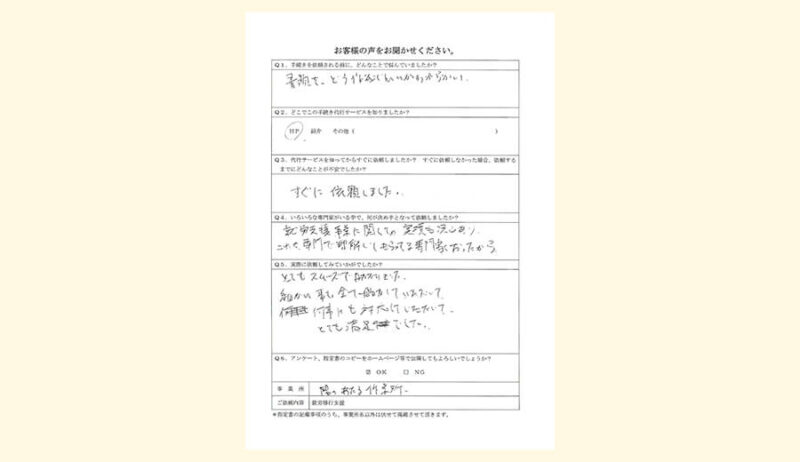 お客様の声をお聞かせください。
Q1、手続きを依頼される前に、どんなことで悩んでいましたか?
書類を、どう作成してもいいかわからない。
Q2、どこでこの手続き代行サービスを知りましたか?
HP 紹介 その他 ( )
Q3、代行サービスを知ってからすぐに依頼しましたか? すぐに依頼しなかった場合、依頼する
までにどんなことが不安でしたか?
すぐに依頼しました。
Q4、いろいろな専門家がいる中で、何が決め手となって依頼しましたか?
就労支援事業に関しての実績も沢山あり
専門で理解してもらってる専門家だったから
Q5、実際に依頼してみていかがでしたか?
とてもスムーズで助かりました。
細かい事も全て協力していただいて
何事にも対応していただいて
とても満足でした。
Q6、アンケート、指定書のコピーをホームページ等で公開してもよろしいでしょうか?
☑ OK □ NG
事業所 陽のあたる作業所
ご依頼内容 就労移行支援
*指定書の記載事項のうち、事業所名以外は伏せて掲載させて頂きます。